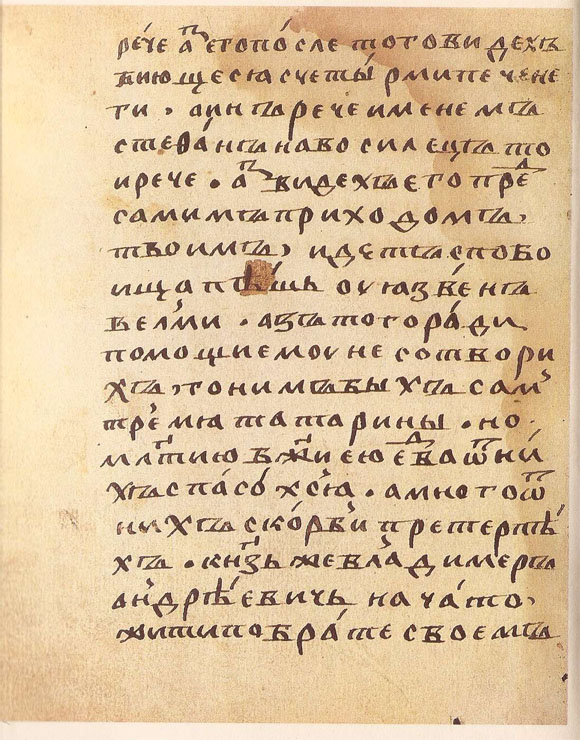 рече а҆з̾ его после того видехъ
биющесѧ с четы́рми печене
ги · а ин рече именемъ
стефа́нъ навосилецъ то
и рече · а҆з̾ видехъ его пре́д
самимъ приходомъ,
твоимъ, идетъ с побо
ища пѣшь оуꙗзве́нъ
вел̾ми · азъ того ра́ди
помощи емоу не сотвори
хъ, гонимъ быхъ сам̾
тре́мѧ татарины · но
мл҇тию бж҃иею е҆два ѿ ни́
хъ спасо́хсѧ · а много ѿ
нихъ ско́рби претерпѣ
хъ · кнѧз̾ же влад̾имеръ
андрѣ́евичь нача то,
жити по бра́те своемъ